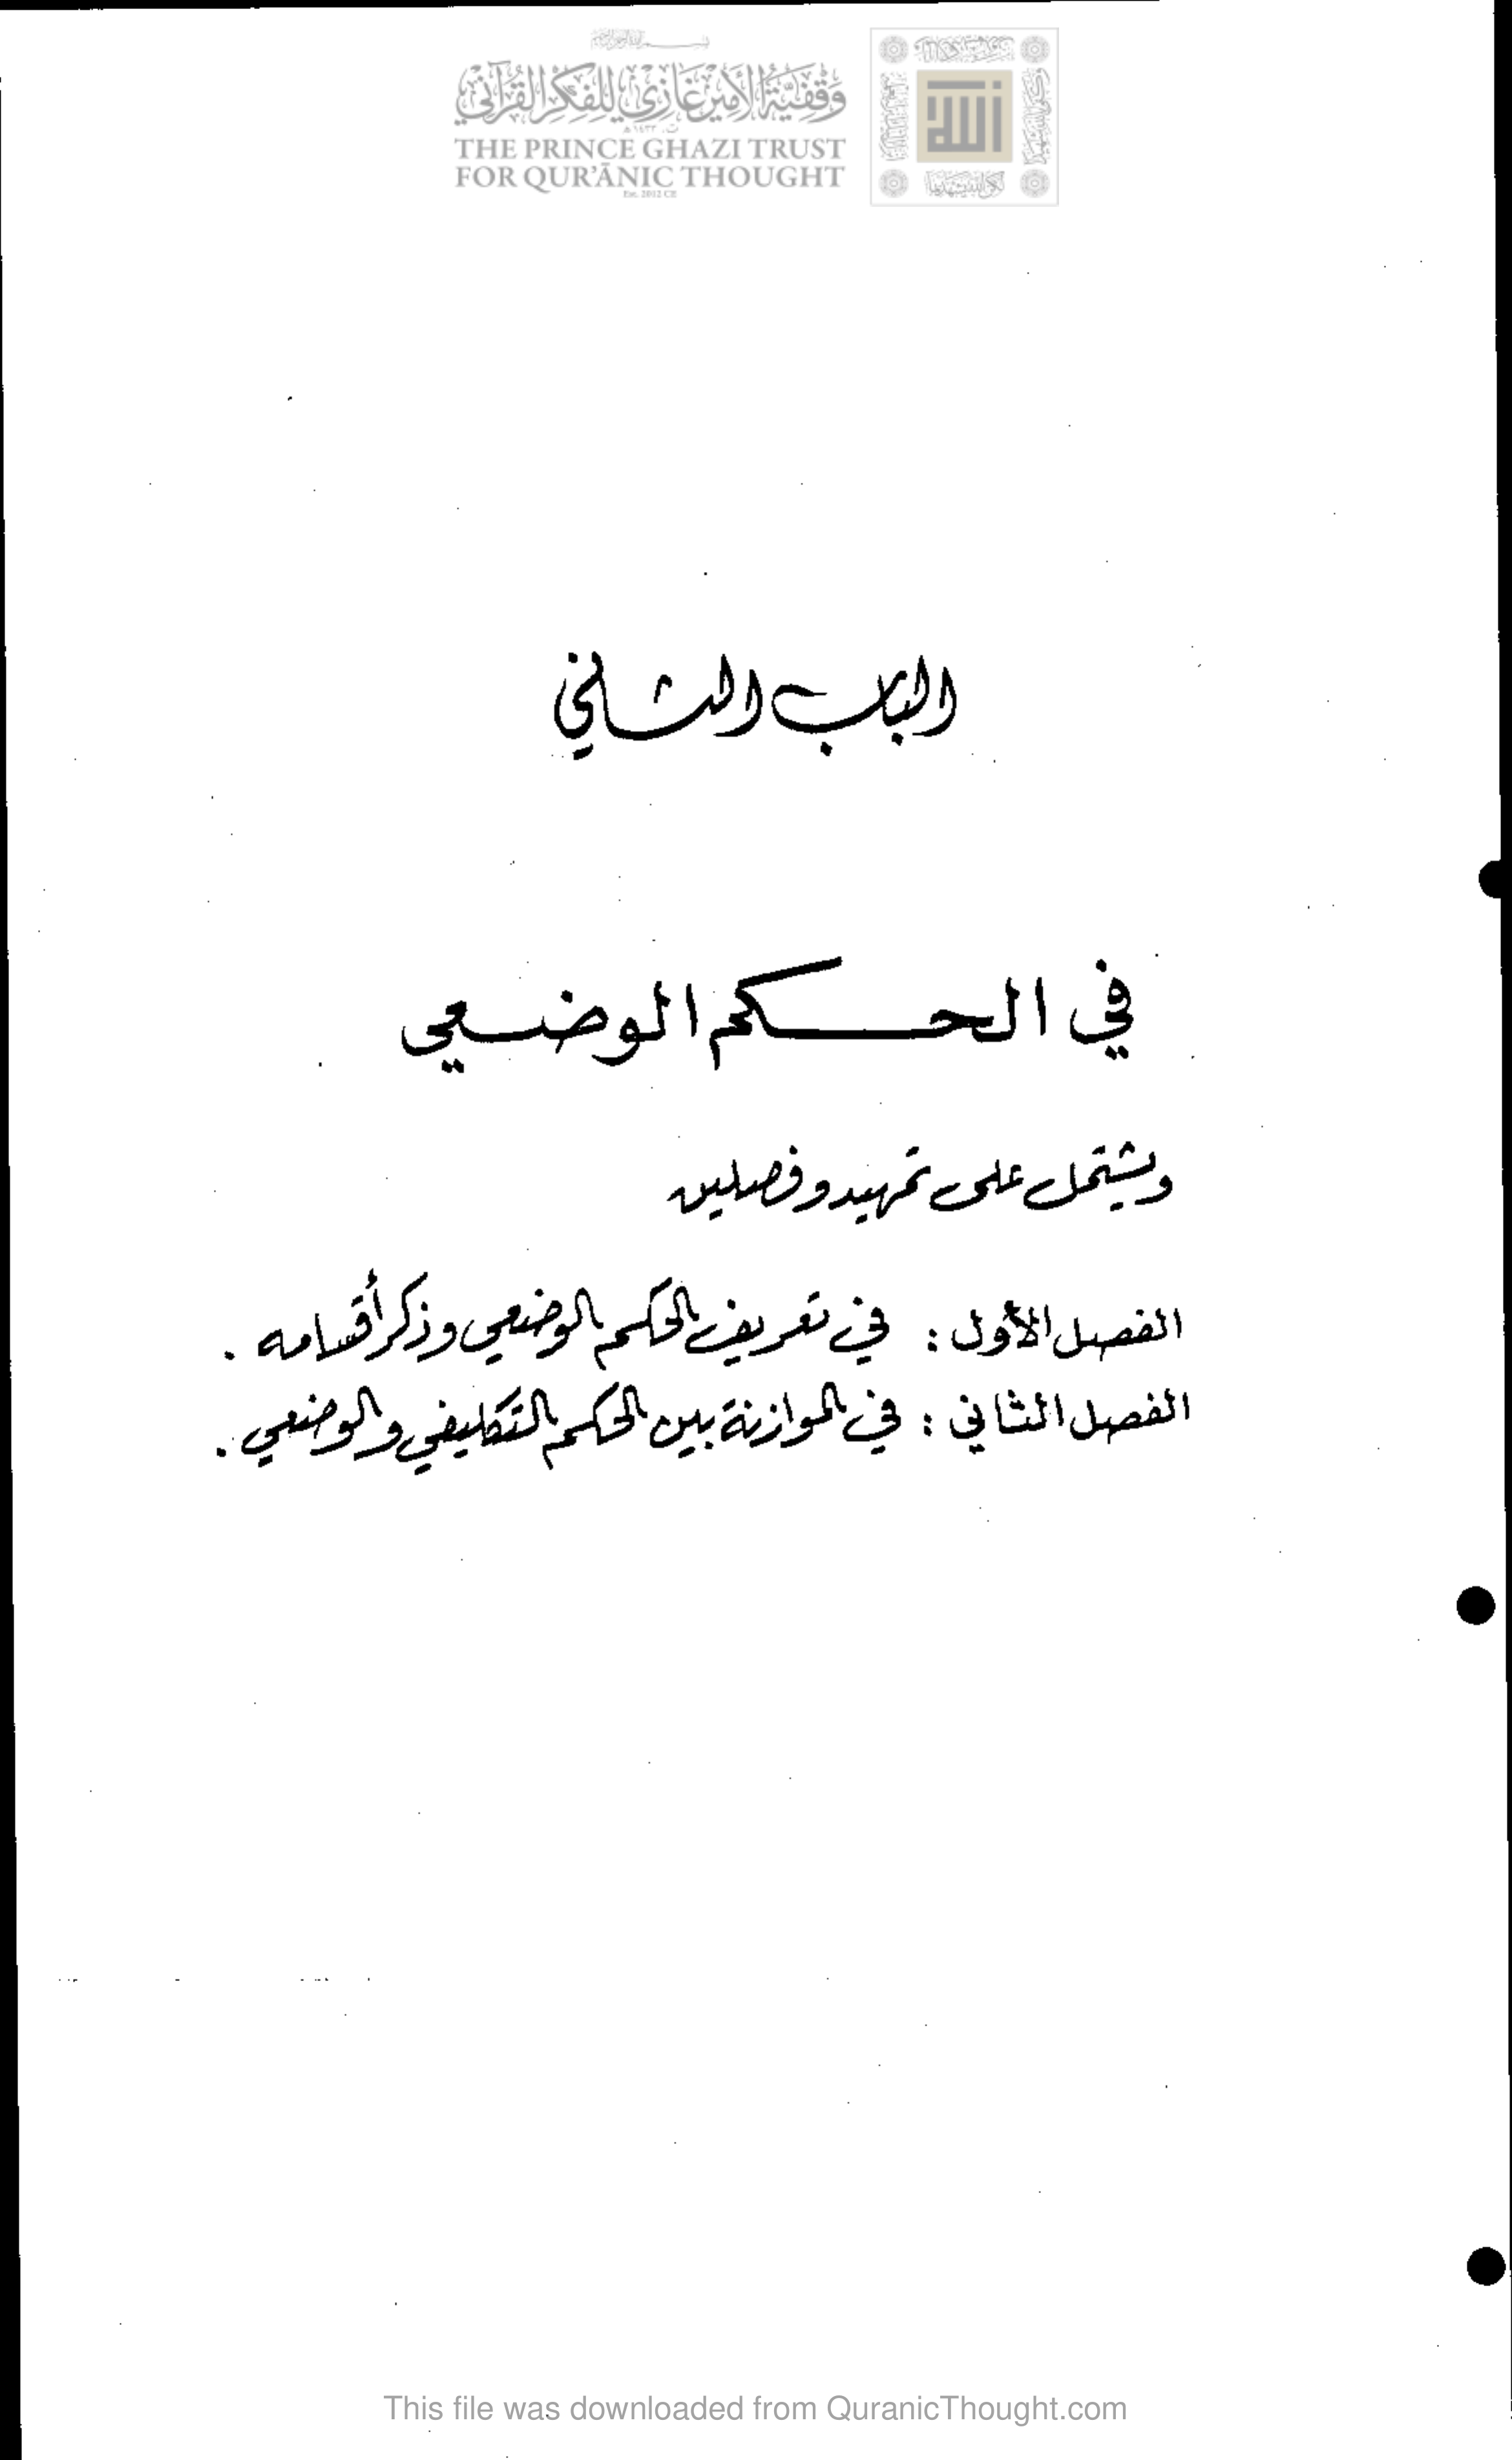 وقفية الأمير غازي للفكر القرآني
THE PRINCE GHAZI TRUST
FOR QUR'ĀNIC THOUGHT
Est. 2012 CE
الباب الثاني
في الحكم الوضعي
ويشتمل على تمهيد وفصلين
الفصل الأول : في تعريف الحكم الوضعي وذكر أقسامه .
الفصل الثاني : في الموازنة بين الحكم التكليفي والوضعي .
This file was downloaded from QuranicThought.com